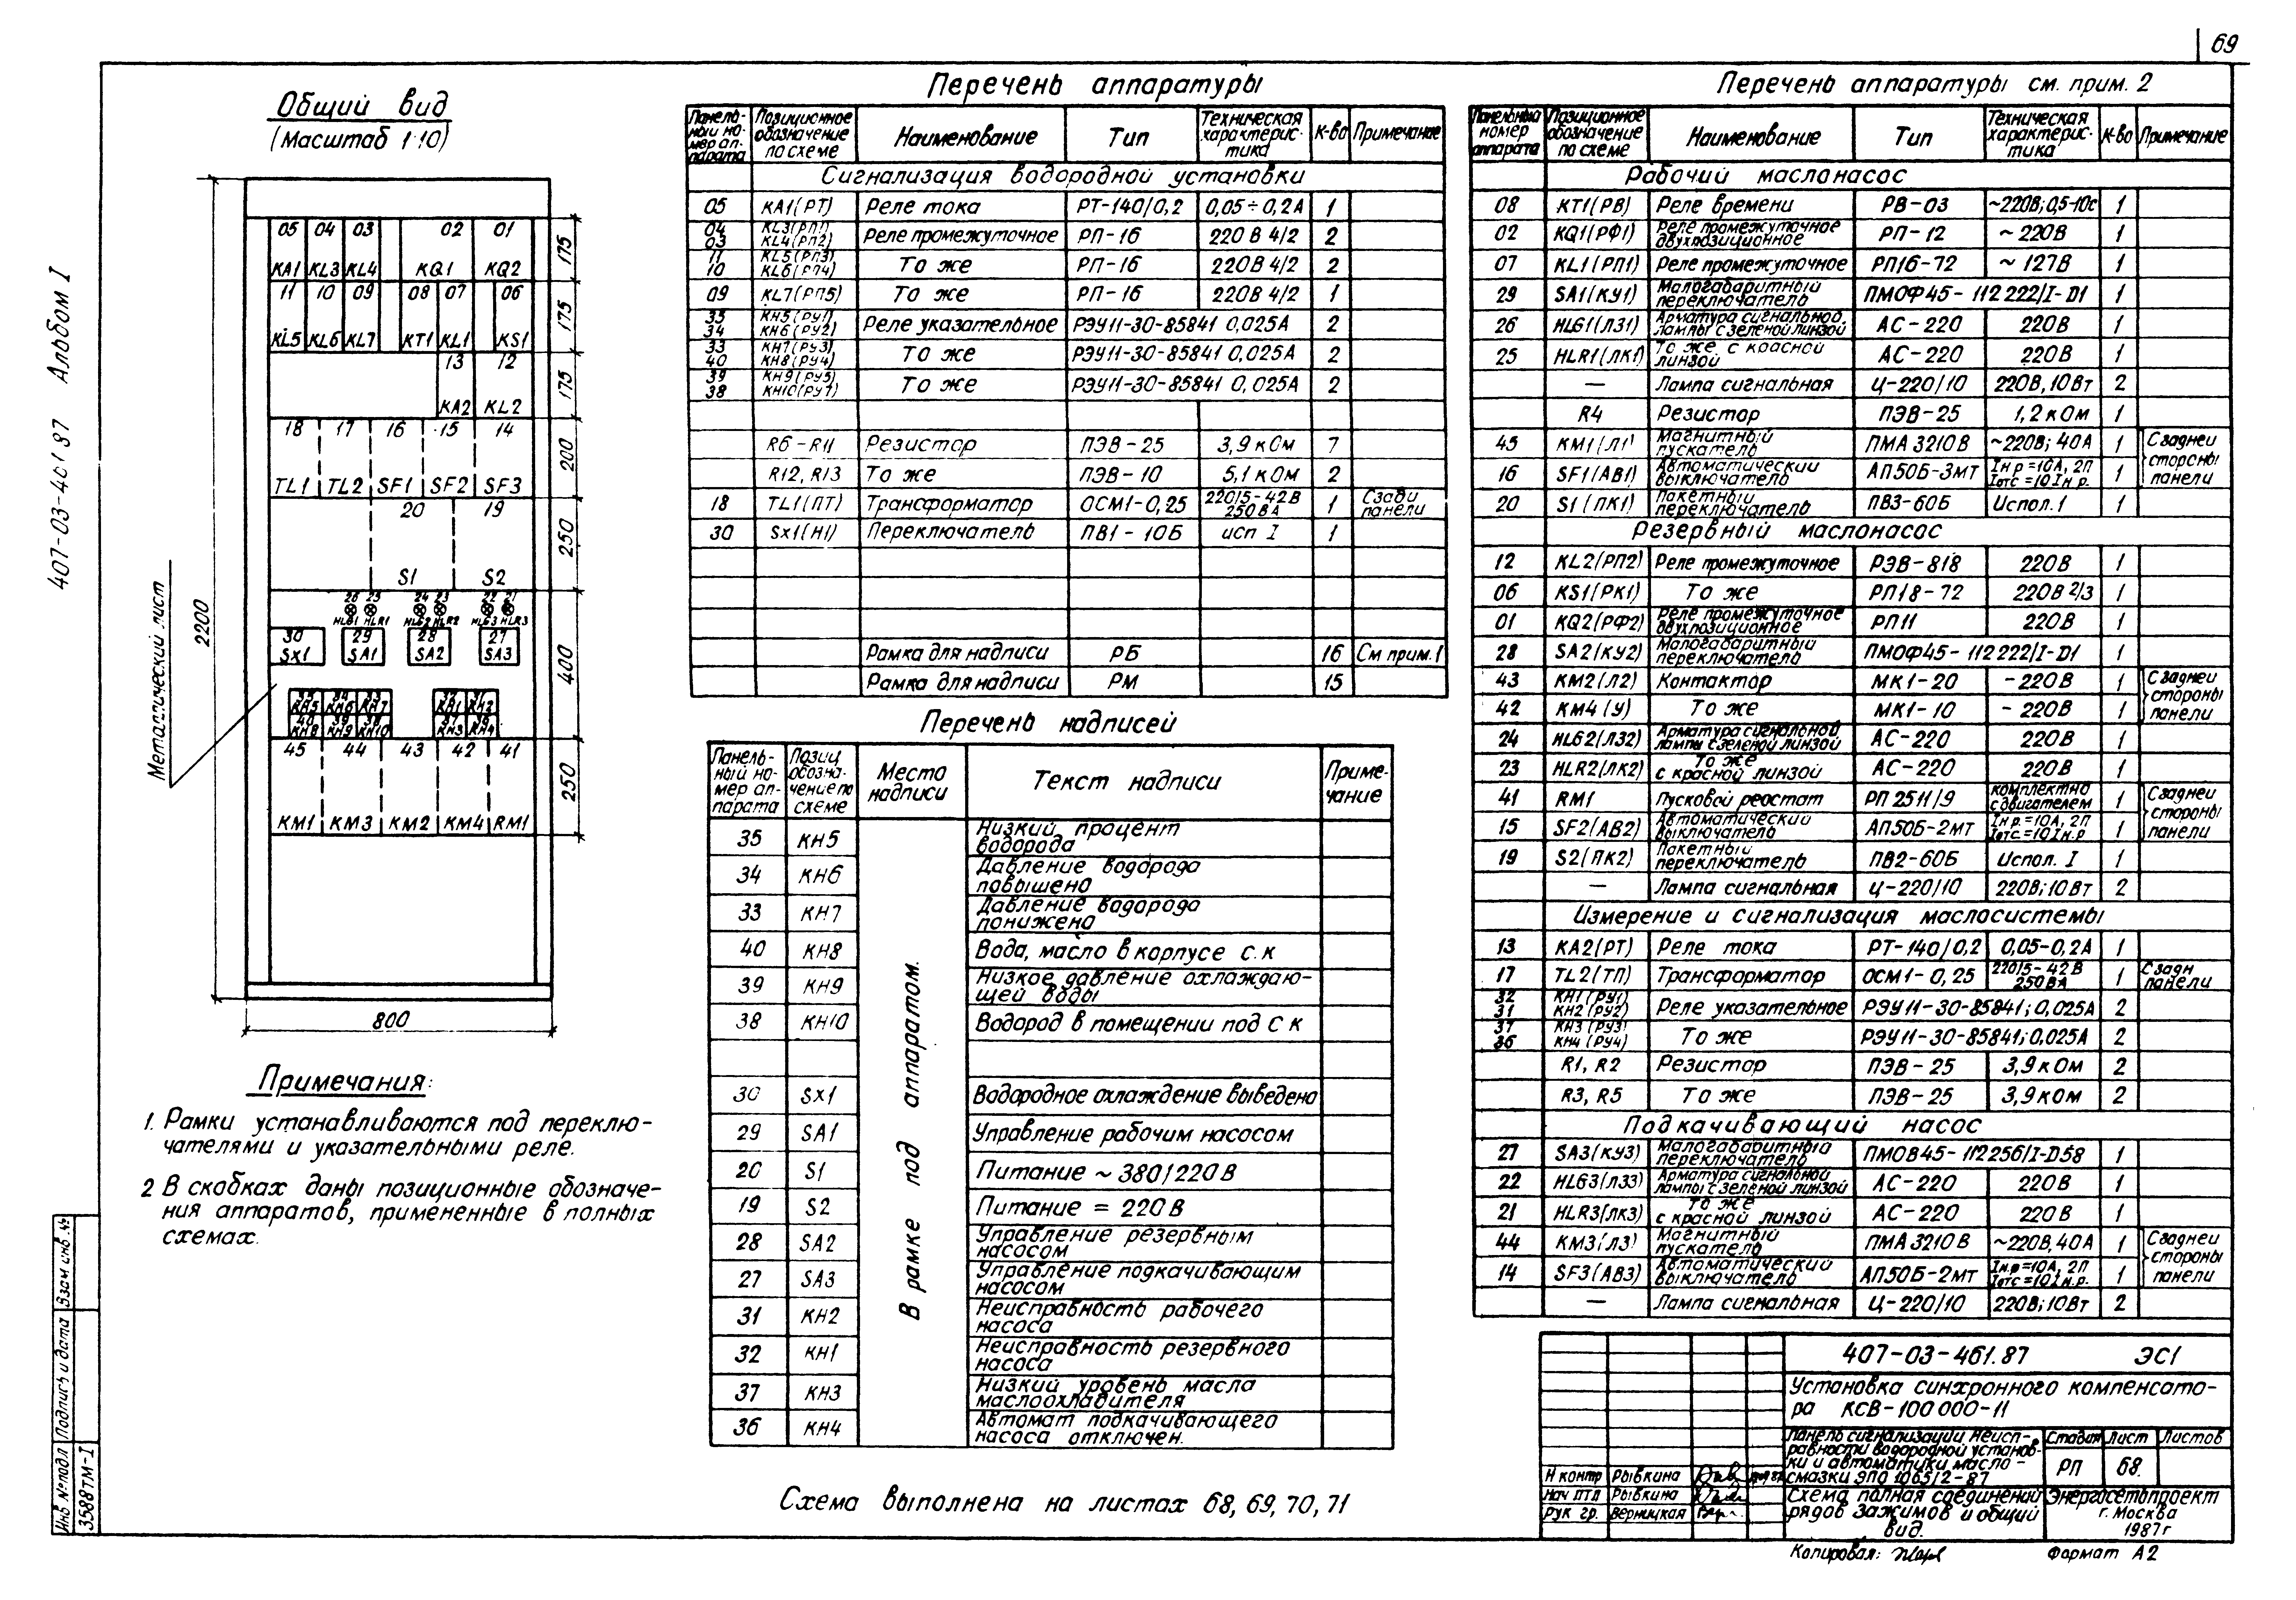 69
407-03-461.87 Альбом I
Общий вид
(Масштаб 1:10)
05 04 03 02 01
KA1 KL3 KL4 KQ1 KQ2
175
11 10 09 08 07 06
KL5 KL6 KL7 KT1 KL1 KS1
175
13 12
KA2 KL2
175
18 17 16 15 14
TL1 TL2 SF1 SF2 SF3
200
20 19
S1 S2
250
26 25 24 23 22 21
HLG1 HLR1 HLG2 HLR2 HLG3 HLR3
30 29 28 27
Sx1 SA1 SA2 SA3
400
35 34 33 32 31
КН5 КН6 КН7 КН1 КН2
40 39 38 37 36
КН8 КН9 КН10 КН3 КН4
45 44 43 42 41
KM1 KM3 KM2 KM4 RM1
250
2200
Металлический лист
800
Примечания:
1. Рамки устанавливаются под переклю-
чателями и указательными реле.
2 В скобках даны позиционные обозначе-
ния аппаратов, примененные в полных
схемах.
Перечень аппаратуры
Панель-ный но-мер ап-парата Позиционное обозначение по схеме Наименование Тип Техническая характерис-тика К-во Примечание
Сигнализация водородной установки
05 KA1(РТ) Реле тока РТ-140/0,2 0,05÷0,2А 1
04 03 KL3(РП1) KL4(РП2) Реле промежуточное РП-16 220 В 4/2 2
11 10 KL5(РП3) KL6(РП4) То же РП-16 220В 4/2 2
09 KL7(РП5) То же РП-16 220В 4/2 1
35 34 КН5(РУ1) КН6(РУ2) Реле указательное РЭУ11-30-85841 0,025А 2
33 40 КН7(РУ3) КН8(РУ4) То же РЭУ11-30-85841 0,025А 2
39 38 КН9(РУ5) КН10(РУ7) То же РЭУ11-30-85841 0,025А 2
R6-R11 Резистор ПЭВ-25 3,9 кОм 7
R12, R13 То же ПЭВ-10 5,1 кОм 2
18 TL1(ПТ) Трансформатор ОСМ1-0,25 220/5-42В 250ВА 1 Сзади панели
30 Sx1(Н1) Переключатель ПВ1-10Б исп I 1
Рамка для надписи РБ 16 См прим. 1
Рамка для надписи РМ 15
Перечень надписей
Панель-ный но-мер ап-парата Позиц обозна-чение по схеме Место надписи Текст надписи Приме-чание
В рамке под аппаратом.
35 КН5 Низкий процент водорода
34 КН6 Давление водорода повышено
33 КН7 Давление водорода понижено
40 КН8 Вода, масло в корпусе с.к
39 КН9 Низкое давление охлаждаю-щей воды
38 КН10 Водород в помещении под С К
30 Sx1 Водородное охлаждение выведено
29 SA1 Управление рабочим насосом
20 S1 Питание ~ 380/220 В
19 S2 Питание = 220 В
28 SA2 Управление резервным насосом
27 SA3 Управление подкачивающим насосом
31 КН2 Неисправность рабочего насоса
32 КН1 Неисправность резервного насоса
37 КН3 Низкий уровень масла маслоохладителя
36 КН4 Автомат подкачивающего насоса отключен.
Схема выполнена на листах 68, 69, 70, 71
Перечень аппаратуры см. прим. 2
Панельный номер аппарата Позиционное обозначение по схеме Наименование Тип Техническая характерис-тика К-во Примечание
Рабочий маслонасос
08 KT1(РВ) Реле времени РВ-03 ~220В; 0,5-10с 1
02 KQ1(РФ1) Реле промежуточное двухпозиционное РП-12 ~220В 1
07 KL1(РП1) Реле промежуточное РП16-72 ~127В 1
29 SA1(КУ1) Малогабаритный переключатель ПМОФ45-112222/I-Д1 1
26 HLG1(ЛЗ1) Арматура сигнальной лампы с зеленой линзой АС-220 220В 1
25 HLR1(ЛК1) То же с красной линзой АС-220 220В 1
— Лампа сигнальная Ц-220/10 220В, 10Вт 2
R4 Резистор ПЭВ-25 1,2 кОм 1
45 KM1(Л1) Магнитный пускатель ПМА 3210В ~220В; 40А 1 С задней стороны панели
16 SF1(АВ1) Автоматический выключатель АП50Б-3МТ Iн.р=10А, 2П Iотс=10Iн.р. 1
20 S1 (ПК1) Пакетный переключатель ПВ3-60Б Испол. 1 1
Резервный маслонасос
12 KL2(РП2) Реле промежуточное РЭВ-818 220В 1
06 KS1(РК1) То же РП18-72 220В 2/3 1
01 KQ2(РФ2) Реле промежуточное двухпозиционное РП11 220В 1
28 SA2(КУ2) Малогабаритный переключатель ПМОФ45-112222/I-Д1 1
43 KM2(Л2) Контактор МК1-20 -220В 1 С задней стороны панели
42 KM4(У) То же МК1-10 -220В 1
24 HLG2(ЛЗ2) Арматура сигнальной лампы с зеленой линзой АС-220 220В 1
23 HLR2(ЛК2) То же с красной линзой АС-220 220В 1
41 RM1 Пусковой реостат РП 2511/9 комплектно с двигателем 1 С задней стороны панели
15 SF2(АВ2) Автоматический выключатель АП50Б-2МТ Iн.р.=10А, 2П Iотс=10Iн.р 1
19 S2(ПК2) Пакетный переключатель ПВ2-60Б Испол. I 1
— Лампа сигнальная Ц-220/10 220В; 10Вт 2
Измерение и сигнализация маслосистемы
13 KA2(РТ) Реле тока РТ-140/0,2 0,05-0,2А 1
17 TL2(ТП) Трансформатор ОСМ1-0,25 220/5-42В 250ВА 1 С задн панели
32 31 КН1(РУ1) КН2(РУ2) Реле указательное РЭУ11-30-85841; 0,025А 2
37 36 КН3(РУ3) КН4(РУ4) То же РЭУ11-30-85841; 0,025А 2
R1, R2 Резистор ПЭВ-25 3,9 кОм 2
R3, R5 То же ПЭВ-25 3,9 кОм 2
Подкачивающий насос
27 SA3(КУ3) Малогабаритный переключатель ПМОВ45-112256/I-Д58 1
22 HLG3(ЛЗ3) Арматура сигнальной лампы с зеленой линзой АС-220 220В 1
21 HLR3(ЛК3) То же с красной линзой АС-220 220В 1
44 KM3(Л3) Магнитный пускатель ПМА 3210В ~220В, 40А 1 С задней стороны панели
14 SF3(АВ3) Автоматический выключатель АП50Б-2МТ Iн.р=10А, 2П Iотс=10Iн.р. 1
— Лампа сигнальная Ц-220/10 220В; 10Вт 2
407-03-461.87 ЭС1
Установка синхронного компенсато-
ра КСВ-100 000-11
Панель сигнализации неисп-
равности водородной установ-
ки и автоматики масло-
смазки ЭПО 1065/2-87
Стадия Лист Листов
РП 68.
Схема полная соединений
рядов зажимов и общий
вид.
Энергосетьпроект
г. Москва
1987г
Н контр Рывкина
Нач ПТП Рывкина
Рук гр. Верницкая
Копировал:
Формат А2
Взам инв. №
Подпись и дата
Инв № подл
3588тм-I